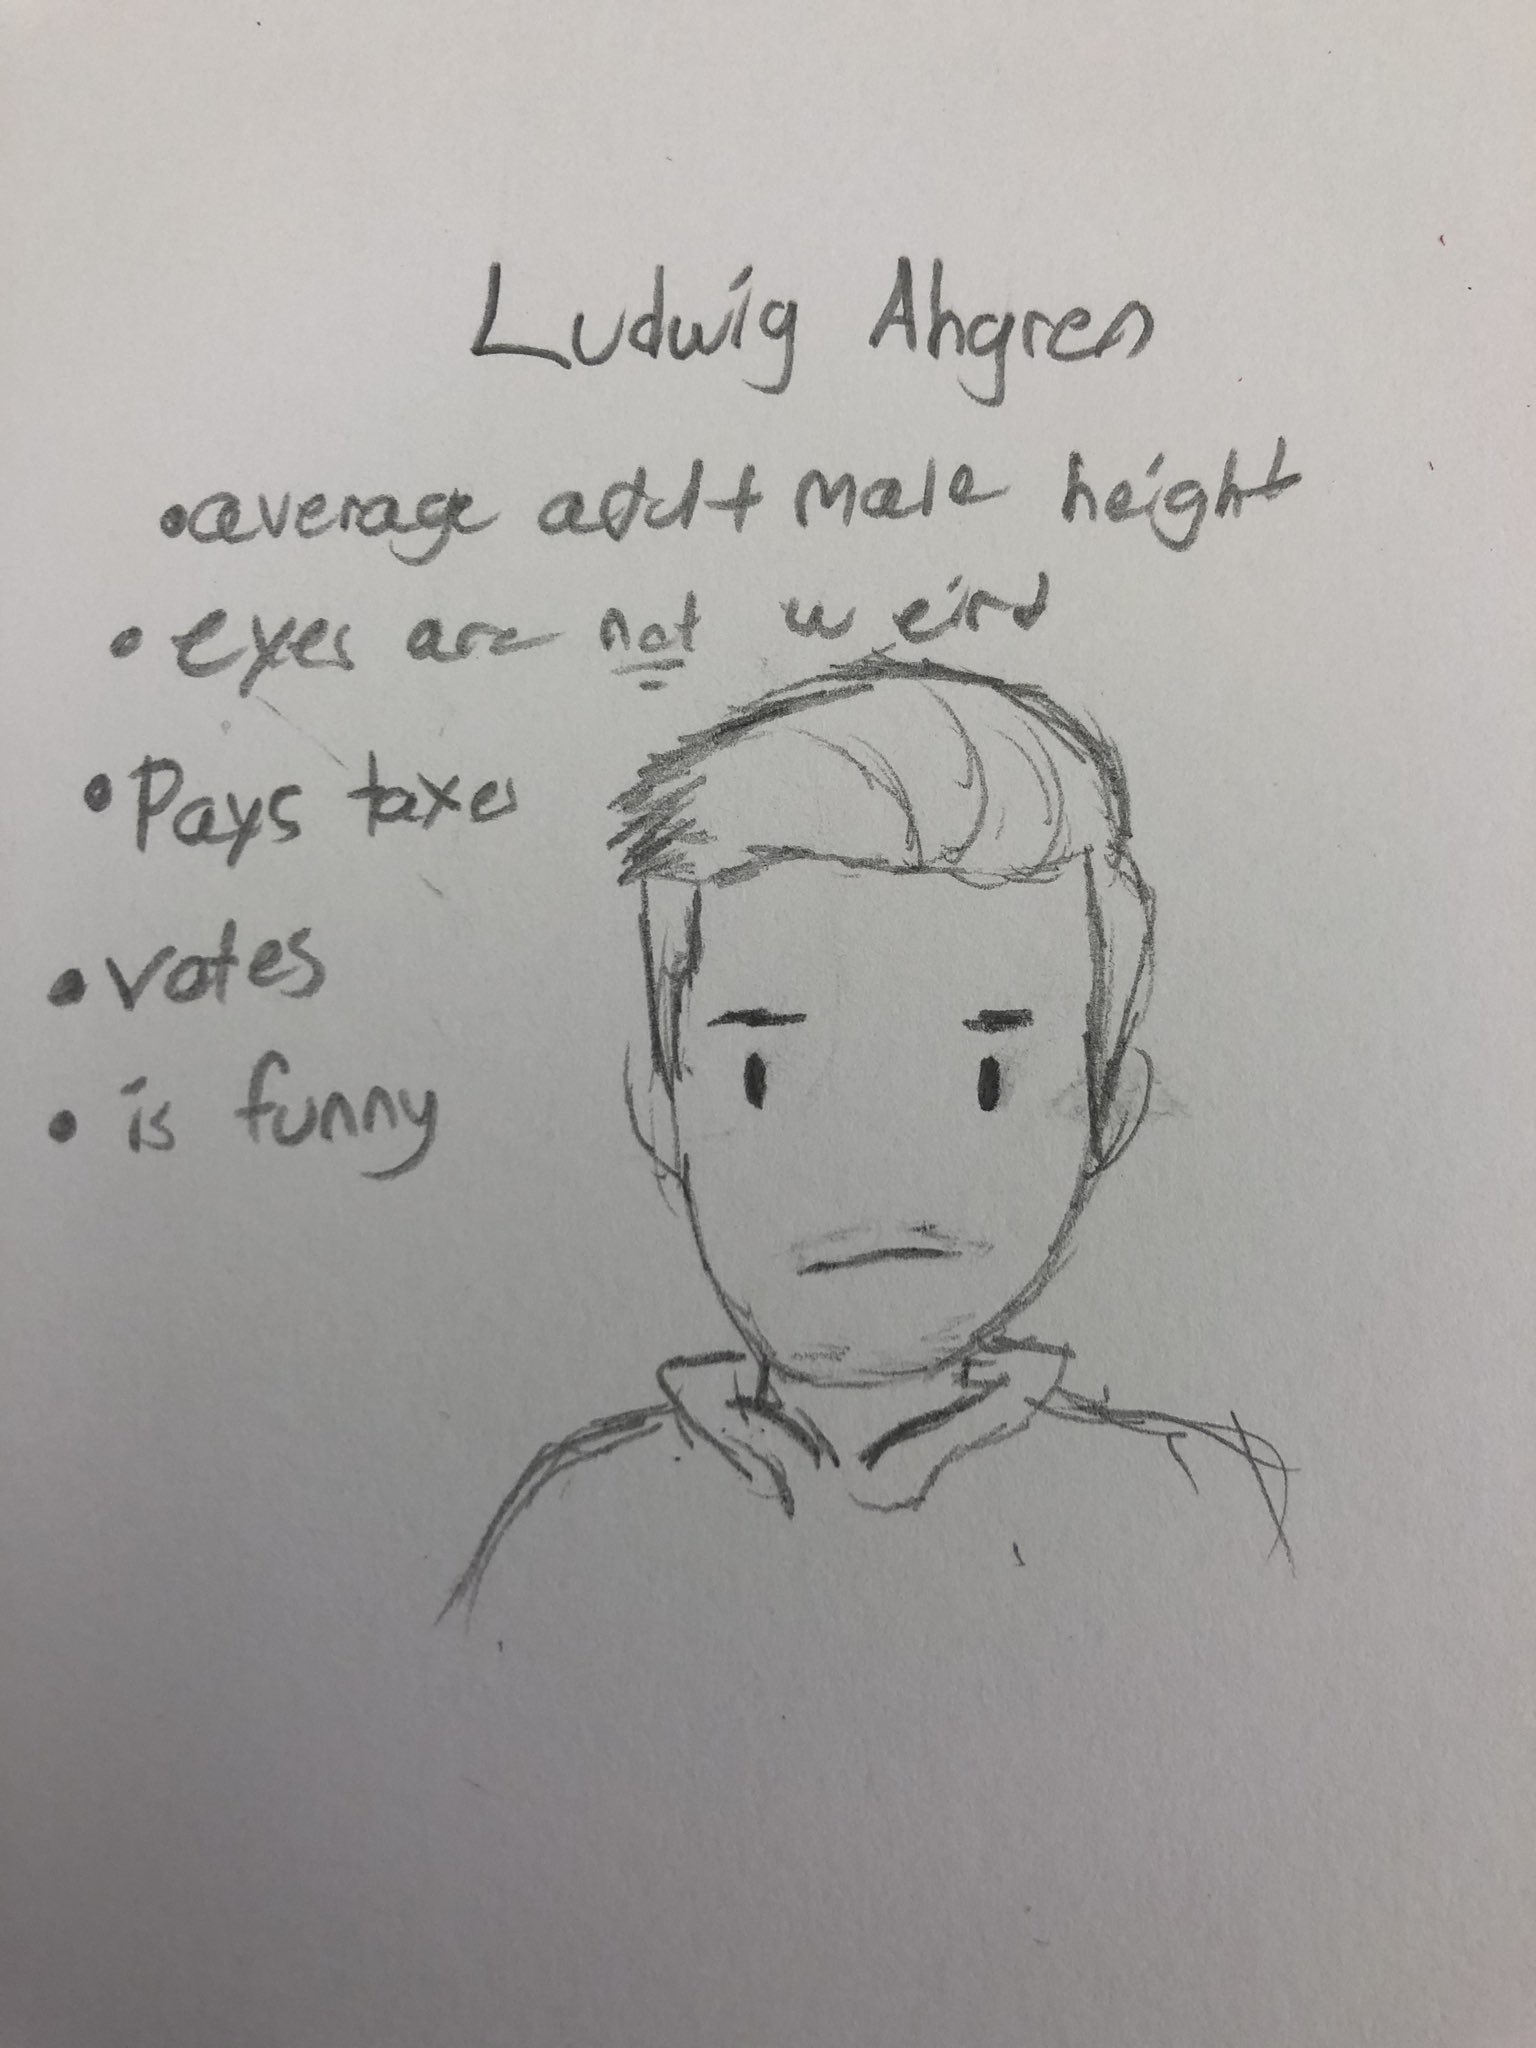 Ludwig Ahgren
• average adult male height
• eyes are not weird
• Pays taxes
• votes
• is funny